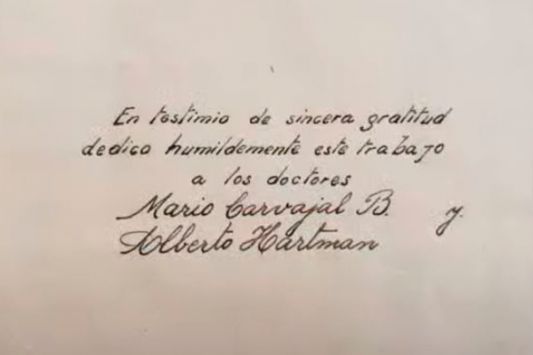 En testimio de sincera gratitud
dedico humildemente este trabajo
a los doctores
Mario Carvajal B. y.
Alberto Hartman